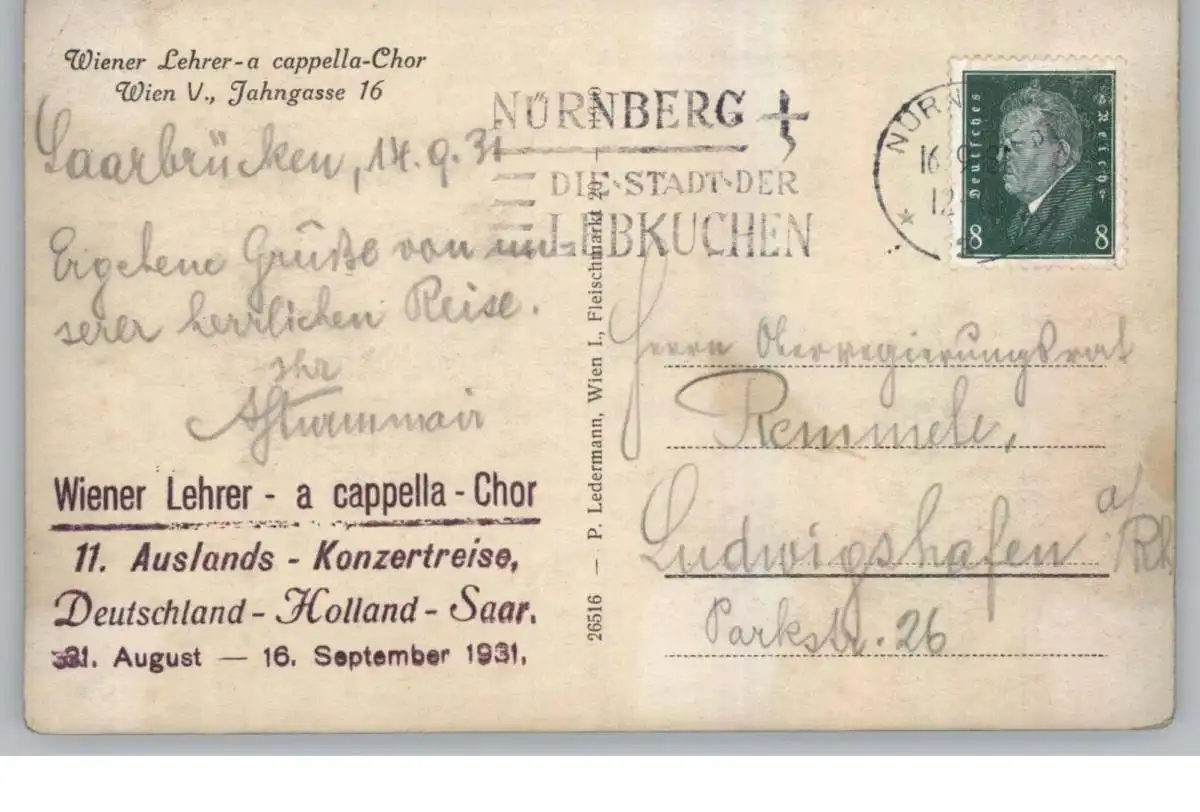 Wiener Lehrer-a cappella-Chor
Wien V., Jahngasse 16
Saarbrücken, 14.9.31
Ergebene Grüße von un-
serer herrlichen Reise.
Ihr
Wiener Lehrer - a cappella - Chor
11. Auslands - Konzertreise,
Deutschland - Holland - Saar.
31. August — 16. September 1931.
26516 — P. Ledermann, Wien I., Fleischmarkt 20 —
NÜRNBERG
DIE·STADT·DER
LEBKUCHEN
NÜRN
16
12
Deutsches Reich
8 8
Herrn Oberregierungsrat
Remmele,
Ludwigshafen a/Rh
Parkstr. 26